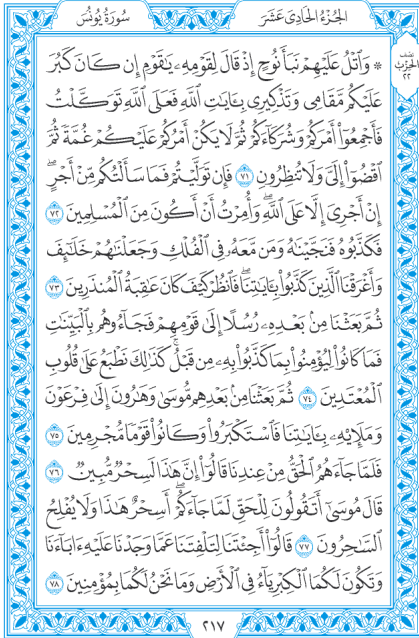 الجُزْءُ الحَادِي عَشَرَ
سُورَةُ يُونُسَ
نصف
الحزب
٢٢
۞ وَٱتْلُ عَلَيْهِمْ نَبَأَ نُوحٍ إِذْ قَالَ لِقَوْمِهِۦ يَٰقَوْمِ إِن كَانَ كَبُرَ
عَلَيْكُم مَّقَامِى وَتَذْكِيرِى بِـَٔايَٰتِ ٱللَّهِ فَعَلَى ٱللَّهِ تَوَكَّلْتُ
فَأَجْمِعُوٓا۟ أَمْرَكُمْ وَشُرَكَآءَكُمْ ثُمَّ لَا يَكُنْ أَمْرُكُمْ عَلَيْكُمْ غُمَّةً ثُمَّ
ٱقْضُوٓا۟ إِلَىَّ وَلَا تُنظِرُونِ ٧١ فَإِن تَوَلَّيْتُمْ فَمَا سَأَلْتُكُم مِّنْ أَجْرٍ ۖ
إِنْ أَجْرِىَ إِلَّا عَلَى ٱللَّهِ ۖ وَأُمِرْتُ أَنْ أَكُونَ مِنَ ٱلْمُسْلِمِينَ ٧٢
فَكَذَّبُوهُ فَنَجَّيْنَٰهُ وَمَن مَّعَهُۥ فِى ٱلْفُلْكِ وَجَعَلْنَٰهُمْ خَلَٰٓئِفَ
وَأَغْرَقْنَا ٱلَّذِينَ كَذَّبُوا۟ بِـَٔايَٰتِنَا ۖ فَٱنظُرْ كَيْفَ كَانَ عَٰقِبَةُ ٱلْمُنذَرِينَ ٧٣
ثُمَّ بَعَثْنَا مِنۢ بَعْدِهِۦ رُسُلًا إِلَىٰ قَوْمِهِمْ فَجَآءُوهُم بِٱلْبَيِّنَٰتِ
فَمَا كَانُوا۟ لِيُؤْمِنُوا۟ بِمَا كَذَّبُوا۟ بِهِۦ مِن قَبْلُ ۚ كَذَٰلِكَ نَطْبَعُ عَلَىٰ قُلُوبِ
ٱلْمُعْتَدِينَ ٧٤ ثُمَّ بَعَثْنَا مِنۢ بَعْدِهِم مُّوسَىٰ وَهَٰرُونَ إِلَىٰ فِرْعَوْنَ
وَمَلَإِي۟هِۦ بِـَٔايَٰتِنَا فَٱسْتَكْبَرُوا۟ وَكَانُوا۟ قَوْمًا مُّجْرِمِينَ ٧٥
فَلَمَّا جَآءَهُمُ ٱلْحَقُّ مِنْ عِندِنَا قَالُوٓا۟ إِنَّ هَٰذَا لَسِحْرٌ مُّبِينٌ ٧٦
قَالَ مُوسَىٰٓ أَتَقُولُونَ لِلْحَقِّ لَمَّا جَآءَكُمْ ۖ أَسِحْرٌ هَٰذَا وَلَا يُفْلِحُ
ٱلسَّٰحِرُونَ ٧٧ قَالُوٓا۟ أَجِئْتَنَا لِتَلْفِتَنَا عَمَّا وَجَدْنَا عَلَيْهِ ءَابَآءَنَا
وَتَكُونَ لَكُمَا ٱلْكِبْرِيَآءُ فِى ٱلْأَرْضِ وَمَا نَحْنُ لَكُمَا بِمُؤْمِنِينَ ٧٨
٢١٧